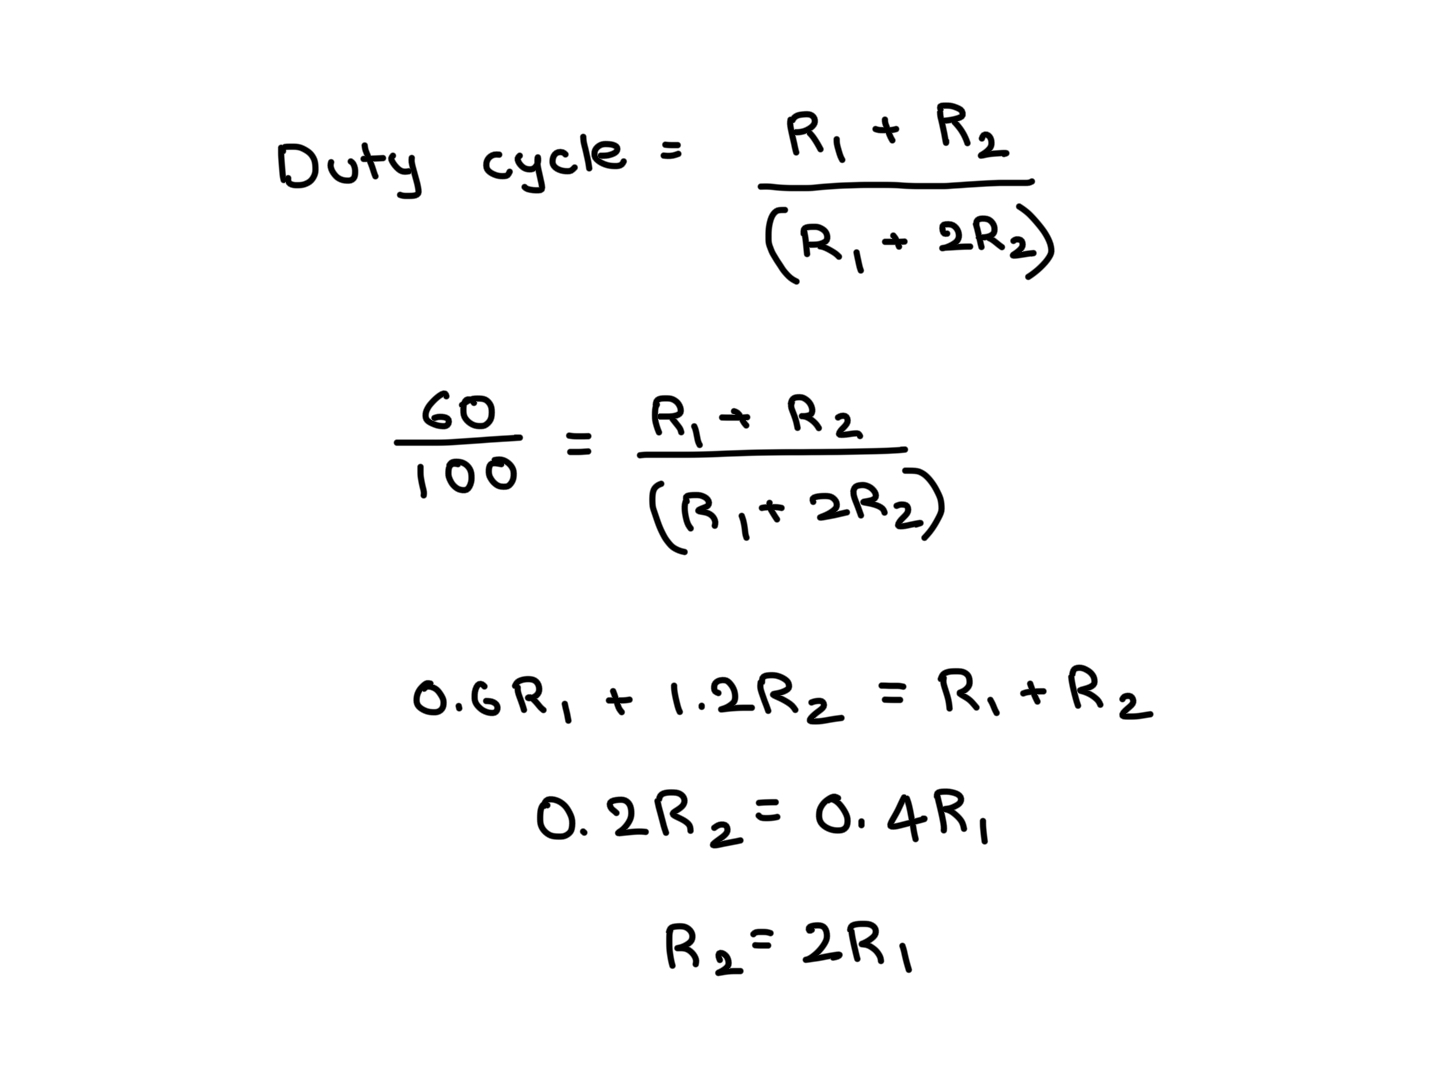 Duty cycle = R₁ + R₂ / (R₁ + 2R₂)
60 / 100 = R₁ + R₂ / (R₁ + 2R₂)
0.6R₁ + 1.2R₂ = R₁ + R₂
0.2R₂ = 0.4R₁
R₂ = 2R₁